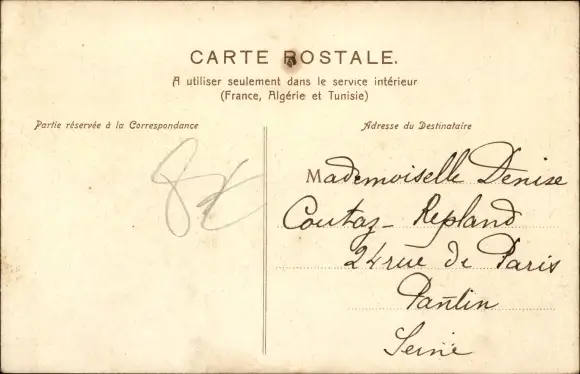 CARTE POSTALE.
A utiliser seulement dans le service intérieur
(France, Algérie et Tunisie)
Partie réservée à la Correspondance
Adresse du Destinataire
Mademoiselle Denise
Coutaz-Repland
24 rue de Paris
Pantin
Seine